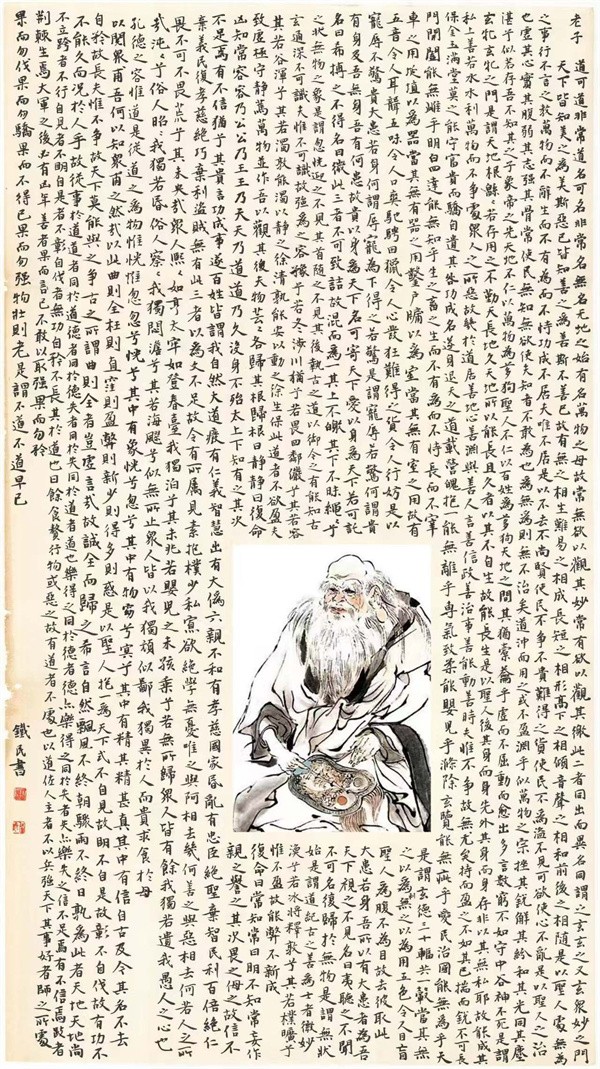 老子 道可道非常道名可名非常名無名天地之始有名萬物之母故常無欲以觀其妙常有欲以觀其徼此二者同出而異名同謂之玄玄之又玄眾妙之門
天下皆知美之為美斯惡已皆知善之為善斯不善已故有無之相生難易之相成長短之相形高下之相傾音聲之相和前後之相隨是以聖人處無為
之事行不言之教萬物作而不辭生而不有為而不恃功成不居夫唯不居是以不去不尚賢使民不爭不貴難得之貨使民不為盜不見可欲使心不亂是以聖人之治
也虛其心實其腹弱其志強其骨常使民無知無欲使夫知者不敢為也為無為則無不治矣道沖而用之或不盈淵乎似萬物之宗挫其銳解其紛和其光同其塵
湛乎似若存吾不知其誰之子象帝之先天地不仁以萬物為芻狗聖人不仁以百姓為芻狗天地之間其猶橐籥乎虛而不屈動而愈出多言數窮不如守中谷神不死是謂
玄牝玄牝之門是謂天地根緜緜若存用之不勤天長地久天地所以能長且久者以其不自生故能長生是以聖人後其身而身先外其身而身存非以其無私耶故能成其
私上善若水水利萬物而不爭處眾人之所惡故幾於道居善地心善淵與善人言善信政善治事善能動善時夫唯不爭故無尤矣持而盈之不如其已揣而銳不可長
保金玉滿堂莫之能守富貴而驕自遺其咎功成名遂身退天之道載營魄抱一能無離乎專氣致柔能嬰兒乎滌除玄覽能無疵乎愛民治國能無為乎天
門開闔能無雌乎明白四達能無知乎生之畜之生而不有為而不恃長而不宰是謂玄德三十輻共一轂當其無
車之用埏埴以為器當其無有器之用鑿戶牖以為室當其無有室之用故有之以為利無之以為用五色令人目盲
五音令人耳聾五味令人口爽馳騁田獵令人心發狂難得之貨令人行妨是以聖人為腹不為目故去彼取此
寵辱不驚貴大患若身何謂寵辱寵為下得之若驚失之若驚是謂寵辱若驚何謂貴大患若身吾所以有大患者為吾
有身及吾無身吾有何患故貴以身為天下者可寄天下愛以身為天下者可託天下視之不見名曰夷聽之不聞
名曰希搏之不得名曰微此三者不可致詰故混而為一其上不皦其下不昧繩乎不可名復歸於無物是謂無狀
之狀無物之象是謂忽恍迎之不見其首隨之不見其後執古之道以御今之有能知古始是謂道紀古之善為士者微妙
玄通深不可識夫唯不可識故強為之容豫乎若冬涉川猶乎若畏四鄰儼乎其若客渙乎若冰將釋敦乎其若樸曠乎
其若谷渾乎其若濁孰能濁以靜之徐清孰能安以動之徐生保此道者不欲盈夫惟不盈故能弊不新成
致虛極守靜篤萬物並作吾以觀其復夫物芸芸各歸其根歸根曰靜靜曰復命復命曰常知常曰明不知常妄作
凶知常容容乃公公乃王王乃天天乃道道乃久沒身不殆太上下知有之其次親之譽之其次畏之侮之故信不
足焉有不信猶乎其貴言功成事遂百姓皆謂我自然大道廢有仁義智慧出有大偽六親不和有孝慈國家昏亂有忠臣絕聖棄智民利百倍絕仁
棄義民復孝慈絕巧棄利盜賊無有此三者以為文不足故令有所屬見素抱樸少私寡欲絕學無憂唯之與阿相去幾何善之與惡相去何若人之所
畏不可不畏荒乎其未央哉眾人熙熙如享太牢如登春臺我獨泊乎其未兆若嬰兒之未孩乘乘乎若無所歸眾人皆有餘我獨若遺我愚人之心也
哉沌沌乎俗人昭昭我獨若昏俗人察察我獨悶悶澹乎其若海飂乎似無所止眾人皆有以我獨頑似鄙我獨異於人而貴求食於母
孔德之容惟道是從道之為物惟恍惟忽忽乎恍乎其中有象恍乎忽乎其中有物窈乎冥乎其中有精其精甚真其中有信自古及今其名不去
以閱眾甫吾何以知眾甫之然哉以此曲則全枉則直窪則盈敝則新少則得多則惑是以聖人抱一為天下式不自見故明不自是故彰不自伐故有功不
自矜故長夫惟不爭故天下莫能與之爭古之所謂曲則全者豈虛言哉故誠全而歸之希言自然飄風不終朝驟雨不終日孰為此者天地天地尚
不能久而況於人乎故從事於道者道者同於道德者同於德失者同於失同於道者道亦樂得之同於德者德亦樂得之同於失者失亦樂失之信不足焉有不信跂者
不立跨者不行自見者不明自是者不彰自伐者無功自矜者不長其於道也曰餘食贅行物或惡之故有道者不處也以道佐人主者不以兵強天下其事好還師之所處
荊棘生焉大軍之後必有凶年善者果而已不敢以取強果而勿矜
果而勿伐果而勿驕果而不得已果而勿強物壯則老是謂不道不道早已
鐵民書